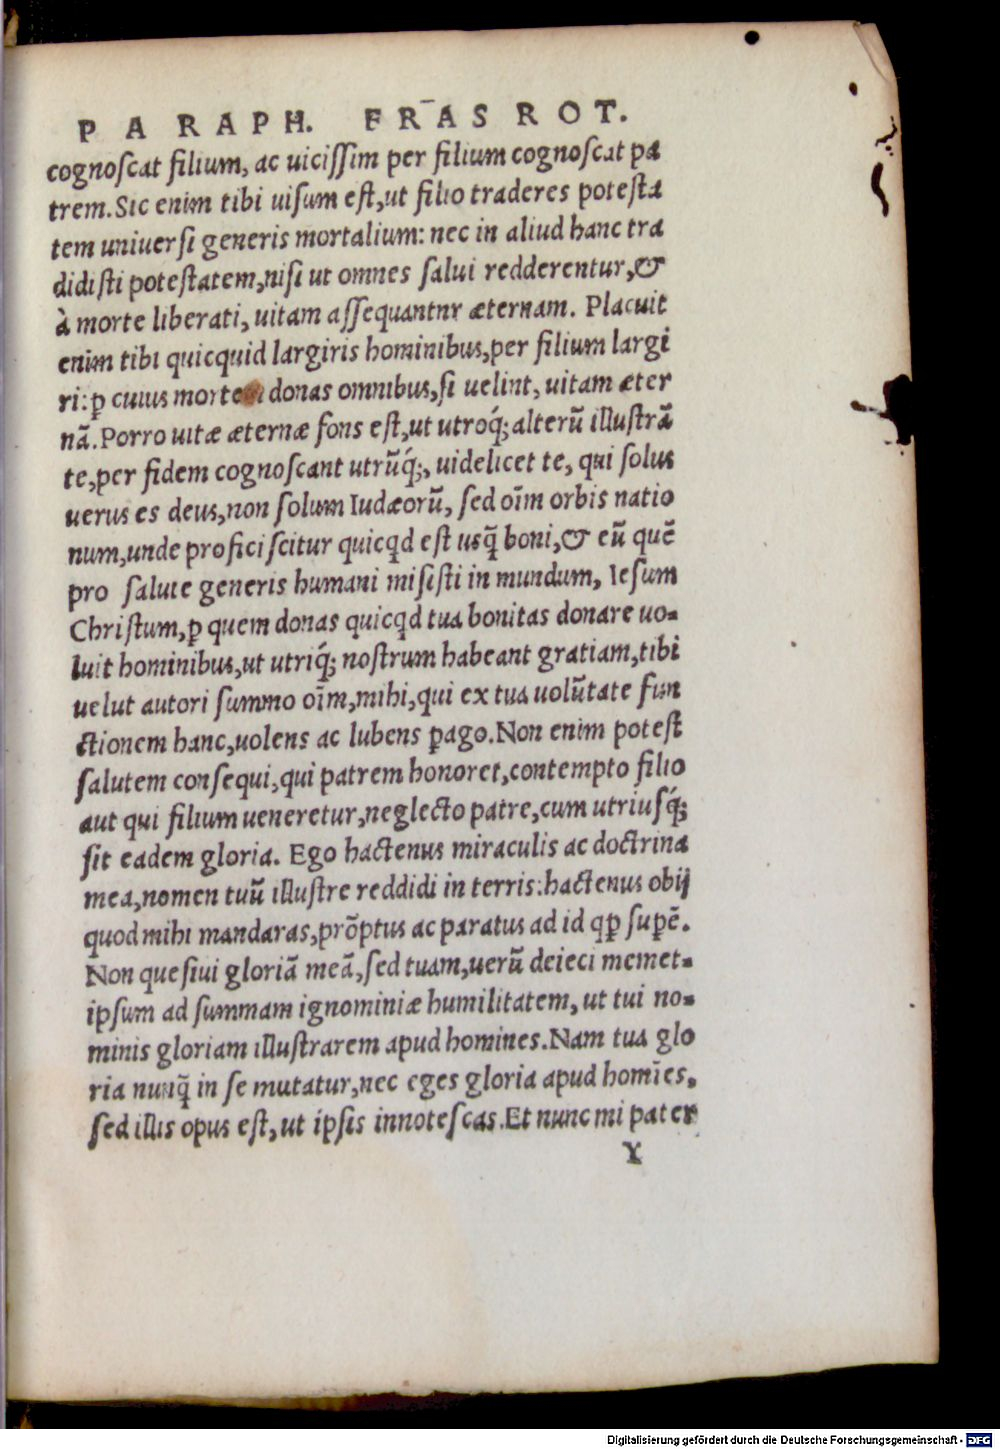 PARAPH. FR̄AS ROT.
cognoſcat filium, ac uiciſſim per filium cognoſcat pa
trem. Sic enim tibi uiſum eſt, ut filio traderes poteſta
tem uniuerſi generis mortalium: nec in aliud hanc tra
didiſti poteſtatem, niſi ut omnes ſalui redderentur, &
à morte liberati, uitam aſſequantnr æternam. Placuit
enim tibi quicquid largiris hominibus, per filium largi
ri: ꝑ cuius mortem donas omnibus, ſi uelint, uitam æter
nã. Porro uitæ æternæ fons eſt, ut utroq́;  alterũ illuſtrã
te, per fidem cognoſcant utrũq́;, uidelicet te, qui ſolus
uerus es deus, non ſolum Iudæorũ, ſed oĩm orbis natio
num, unde proficiſcitur quicqd eſt usq̃ boni, & eũ quẽ
pro ſalute generis humani miſiſti in mundum, Ieſum
Chriſtum, ꝑ quem donas quicqd tua bonitas donare uo-
luit hominibus, ut utriq́; noſtrum habeant gratiam, tibi
uelut autori ſummo oĩm, mihi, qui ex tua uolũtate fun
ctionem hanc, uolens ac lubens ꝑago. Non enim poteſt
ſalutem conſequi, qui patrem honoret, contempto filio
aut qui filium ueneretur, neglecto patre, cum utriuſq́;
ſit eadem gloria. Ego hactenus miraculis ac doctrina
mea, nomen tuũ illuſtre reddidi in terris: hactenus obij
quod mihi mandaras, prõptus ac paratus ad id qꝑ ſuꝑẽ.
Non queſiui gloriã meã, ſed tuam, uerũ deieci memet-
ipſum ad ſummam ignominiæ humilitatem, ut tui no-
minis gloriam illuſtrarem apud homines. Nam tua glo
ria nunq̃ in ſe mutatur, nec eges gloria apud homĩes.
ſed illis opus eſt, ut ipſis innoteſcas. Et nunc mi pater
Y
Digitalisierung gefördert durch die Deutsche Forschungsgemeinschaft - DFG